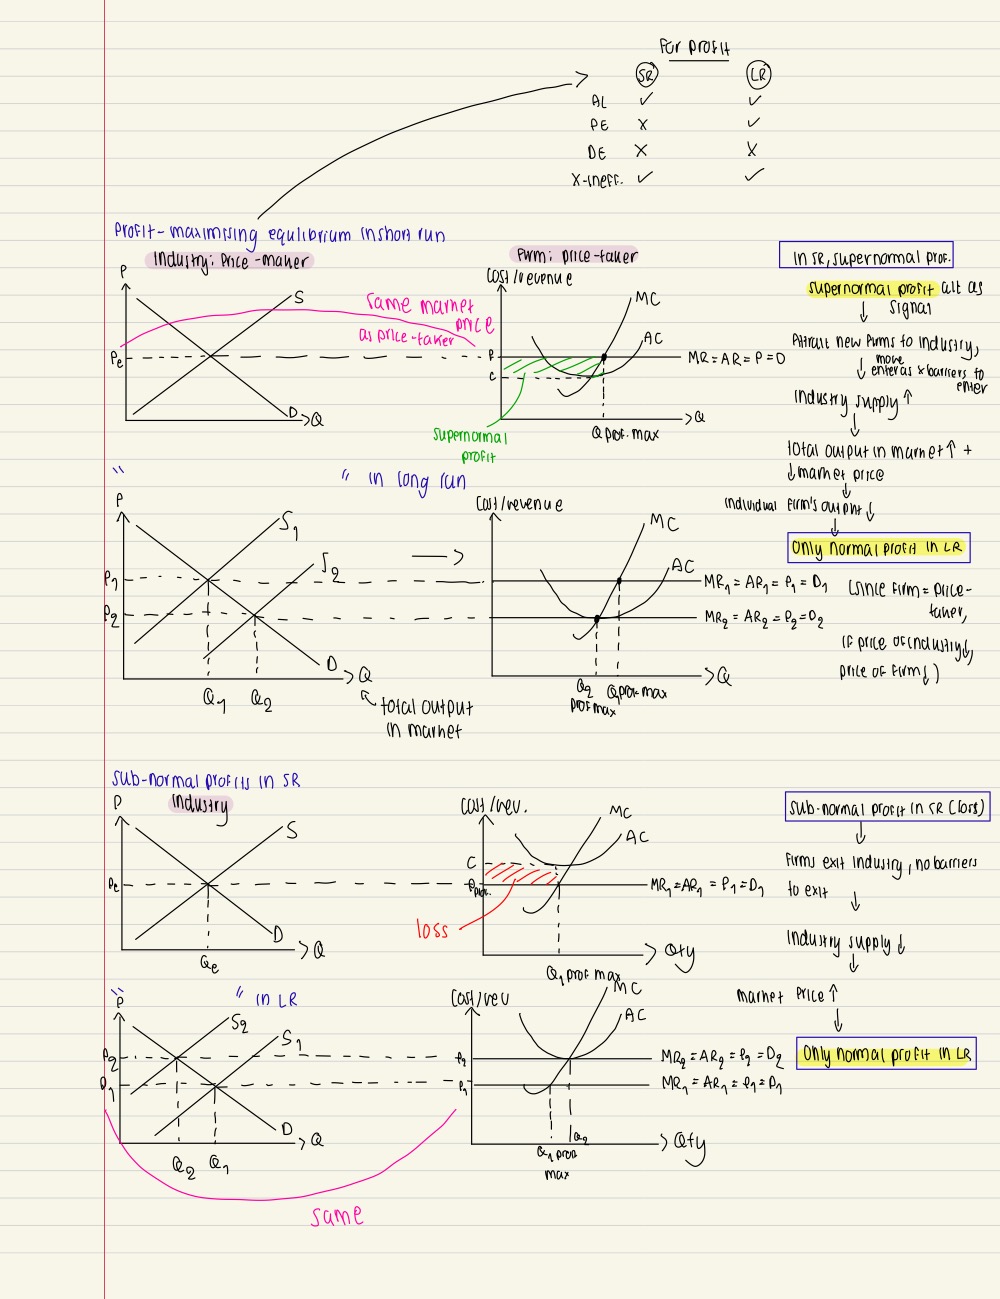 For profit
SR LR
AL ✓ ✓
PE x ✓
DE x x
X-ineff. ✓ ✓
Profit-maximising equlibrium in short run
Industry: Price-maker
Firm: price-taker
In SR, supernormal prof.
P
S
Same market price
as price-taker
Pe
D
Q
Cost/revenue
MC
AC
P
C
MR = AR = P = D
Q
Q prof. max
supernormal
profit
supernormal profit act as
signal
↓
Attract new firms to industry,
↓ more enter as x barriers to
enter
Industry supply ↑
↓
total output in market ↑ +
↓ market price
↓
Individual firm's output ↓
↓
Only normal profit in LR
(since firm = price-
taker,
if price of industry ↓,
price of firm ↓)
" " in long run
P
S1
S2
P1
P2
D
Q
Q1 Q2
total output
in market
→
Cost/revenue
MC
AC
MR1 = AR1 = P1 = D1
MR2 = AR2 = P2 = D2
Q
Q2
prof max
Q1 prof max
Sub-normal profits in SR
Industry
P
S
Pe
D
Q
Qe
Cost/rev.
MC
AC
C
MR1 = AR1 = P1 = D1
loss
Qty
Q1 prof max
Sub-normal profit in SR (loss)
↓
Firms exit industry, no barriers
to exit
↓
Industry supply ↓
↓
market price ↑
↓
Only normal profit in LR
" " in LR
P
S2
S1
P2
P1
D
Q
Q2 Q1
Cost/rev
MC
AC
P2
P1
MR2 = AR2 = P2 = D2
MR1 = AR1 = P1 = D1
Qty
Q1 prof
max
Q2
same